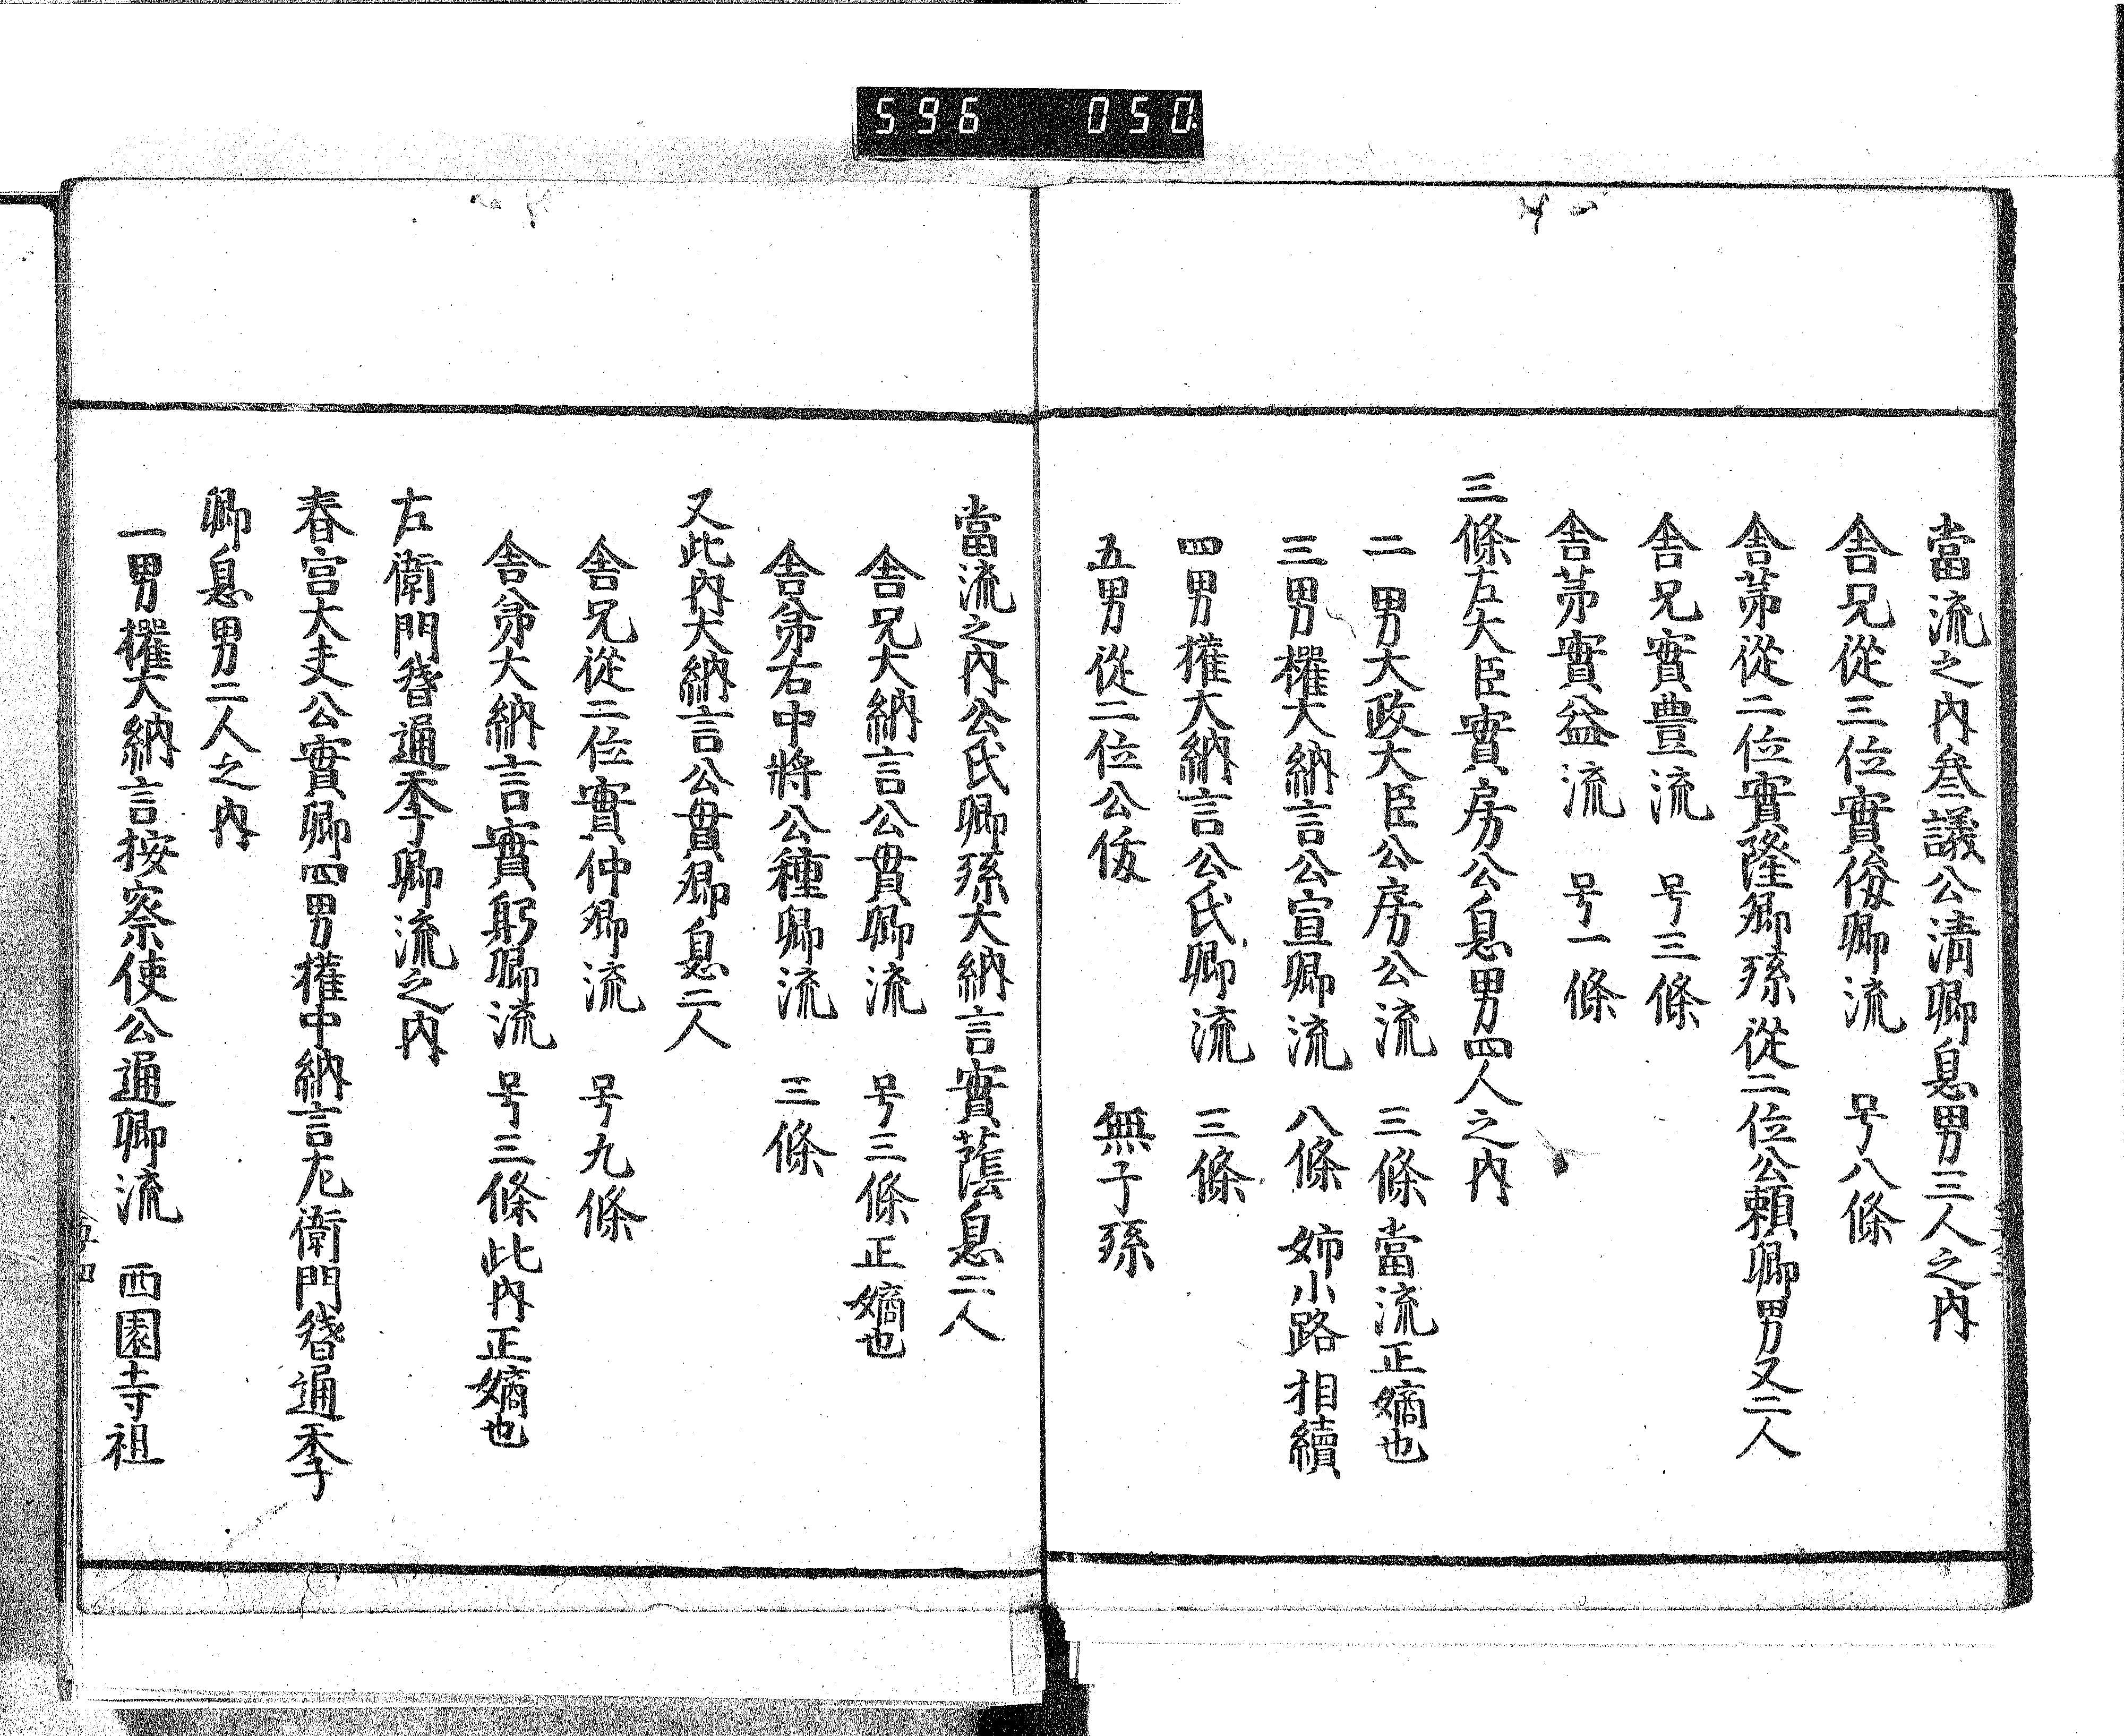 596 050.
當流之內叄議公清卿息男三人之內
舎兄從三位實俊卿流 号八條
舎苐從二位實隆卿孫從二位公賴卿男又二人
舎兄實豊流 号三條
舎苐實益流 号一條
三條左大臣實房公息男四人之內
二男大政大臣公房公流 三條當流正嫡也
三男權大納言公宣卿流 八條 姉小路相續
四男權大納言公氏卿流 三條
五男從二位公俊 無子孫
當流之內公氏卿孫大納言實蔭息二人
舎兄大納言公貫卿流 号三條正嫡也
舎弟右中將公種卿流 三條
又此內大納言公貫卿息二人
舎兄從二位實仲卿流 号九條
舎弟大納言實躬卿流 号三條此內正嫡也
左衛門督通季卿流之內
春宮大夫公實卿四男權中納言左衛門督通季
卿息男二人之內
一男權大納言按察使公通卿流 西園寺祖